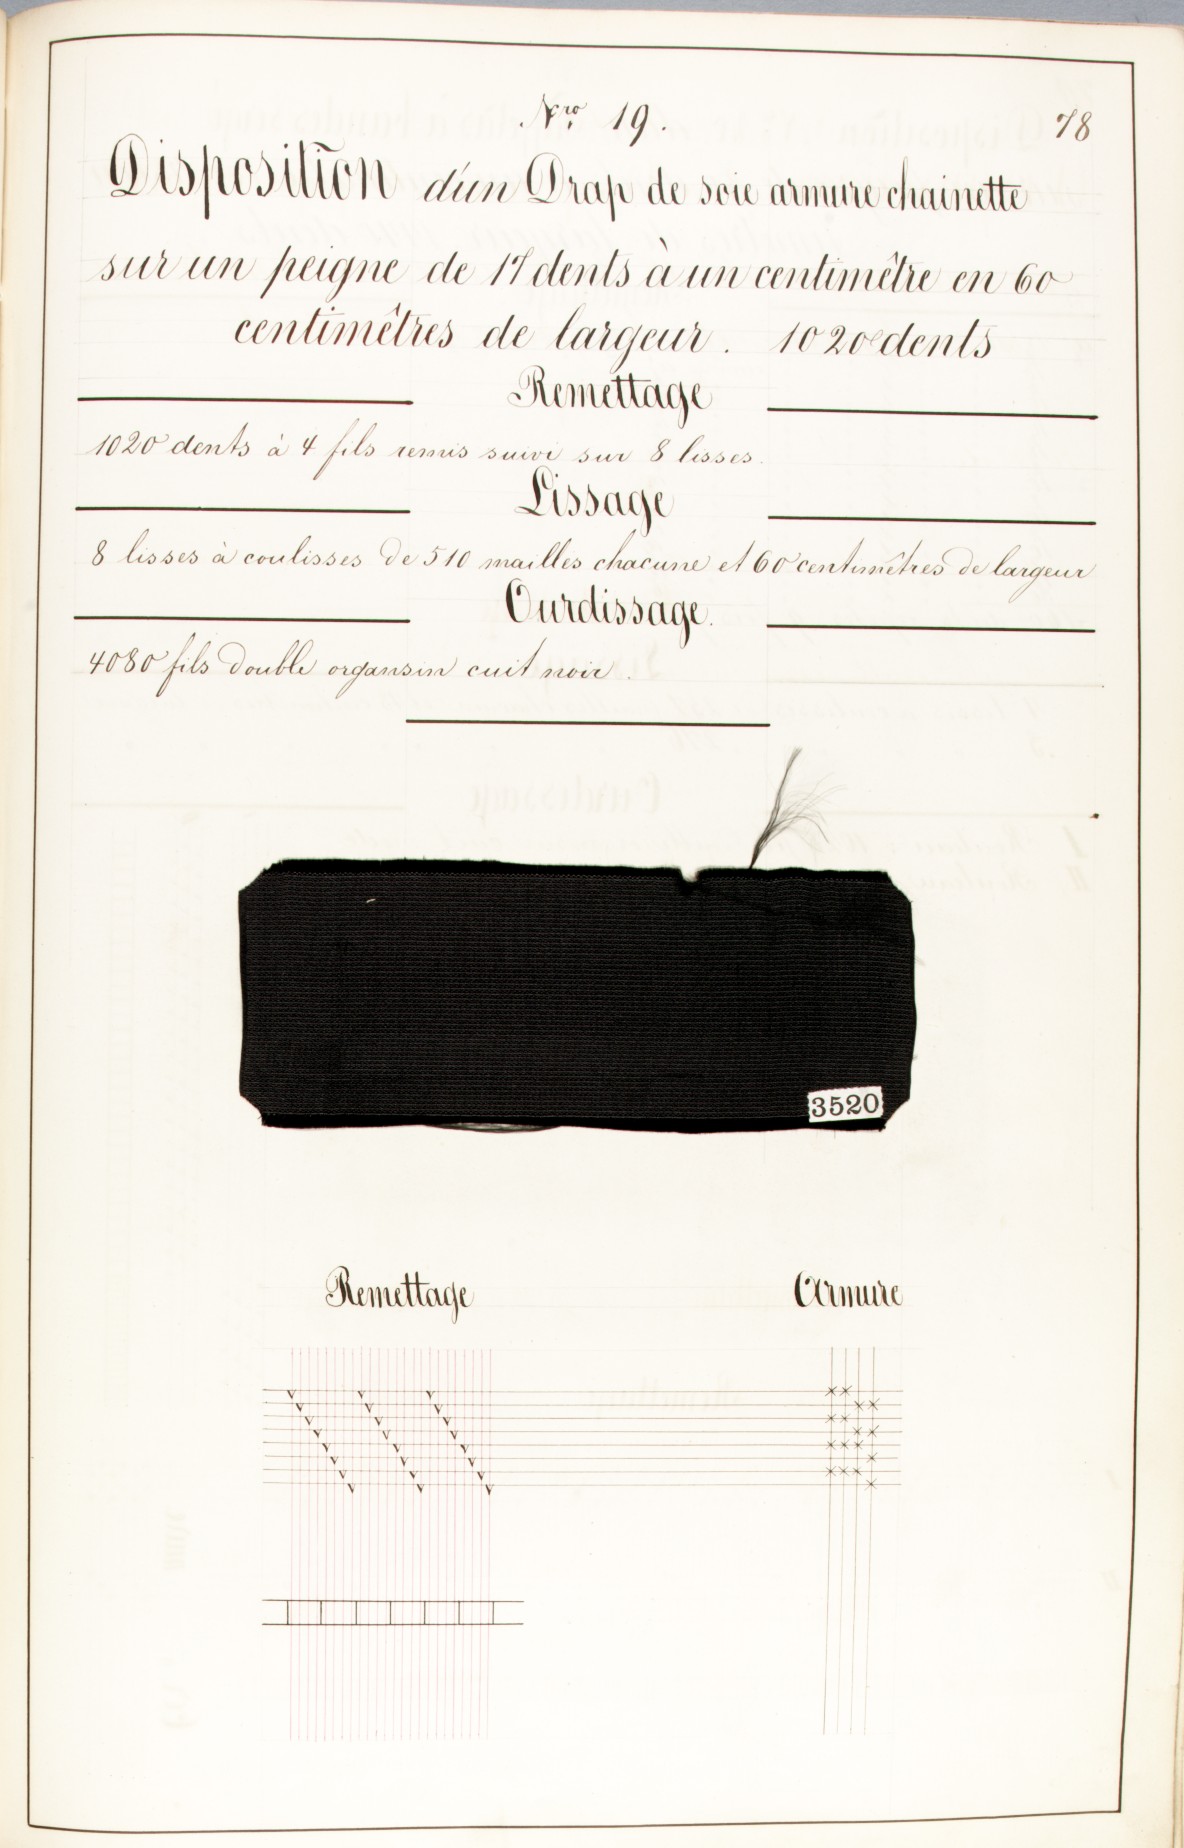 Nro 19.
78
Disposition d'un Drap de soie armure chainette
sur un peigne de 17 dents à un centimêtre en 60
centimêtres de largeur. 1020 dents
Remettage
1020 dents à 4 fils remis suivi sur 8 lisses.
Lissage
8 lisses à coulisses de 510 mailles chacune et 60 centimêtres de largeur
Ourdissage.
4080 fils double organsin cuit noir.
3520
Remettage
Armure